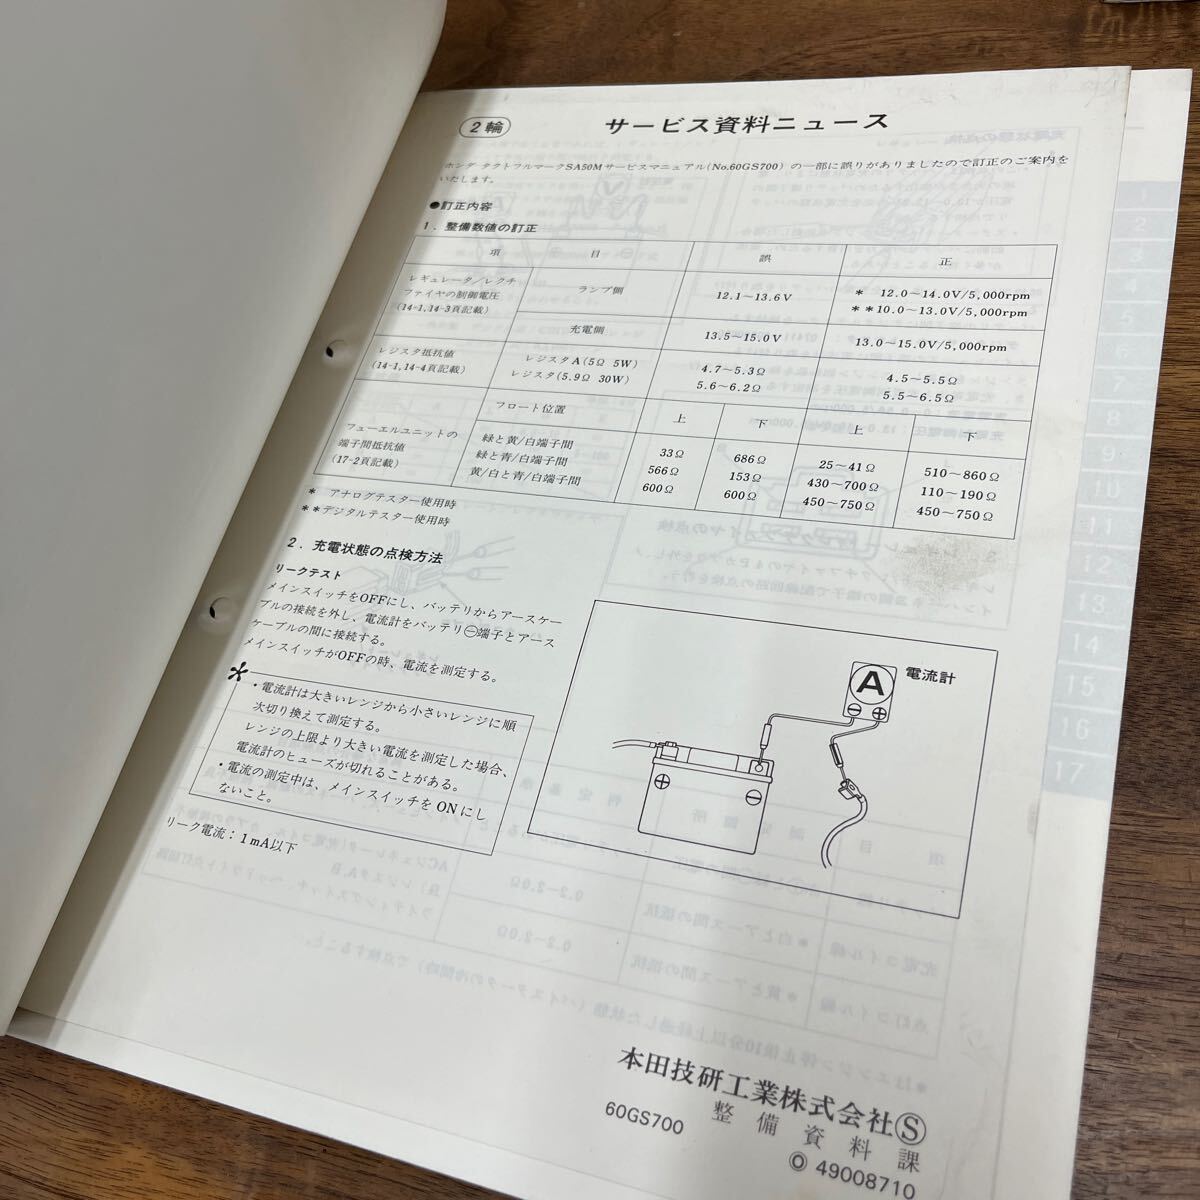 2輪
サービス資料ニュース
ホンダ タクトフルマークSA50Mサービスマニュアル(No.60GS700) の一部に誤りがありましたので訂正のご案内を
いたします。
●訂正内容
1. 整備数値の訂正
項 目 誤 正
レギュレータ/レクチ
ファイヤの制御電圧
(14-1,14-3頁記載)
ランプ側
12.1~13.6V
* 12.0~14.0V/5,000rpm
**10.0~13.0V/5,000rpm
充電側
13.5~15.0V
13.0~15.0V/5,000rpm
レジスタ抵抗値
(14-1,14-4頁記載)
レジスタA(5Ω 5W)
レジスタ(5.9Ω 30W)
4.7~5.3Ω
5.6~6.2Ω
4.5~5.5Ω
5.5~6.5Ω
フューエルユニットの
端子間抵抗値
(17-2頁記載)
フロート位置 上 下 上 下
緑と黄/白端子間 33Ω 686Ω 25~41Ω 510~860Ω
緑と青/白端子間 566Ω 153Ω 430~700Ω 110~190Ω
黄/白と青/白端子間 600Ω 600Ω 450~750Ω 450~750Ω
* アナログテスター使用時
**デジタルテスター使用時
2. 充電状態の点検方法
リークテスト
メインスイッチをOFFにし、バッテリからアースケー
ブルの接続を外し、電流計をバッテリ⊖端子とアース
ケーブルの間に接続する。
メインスイッチがOFFの時、電流を測定する。
*
・電流計は大きいレンジから小さいレンジに順
次切り換えて測定する。
レンジの上限より大きい電流を測定した場合、
電流計のヒューズが切れることがある。
・電流の測定中は、メインスイッチをONにし
ないこと。
リーク電流：1mA以下
A
電流計
⊖ ⊕
⊕ ⊖
本田技研工業株式会社Ⓢ
60GS700
整備資料課
© 49008710
1
2
3
4
5
6
7
8
9
10
11
12
13
14
15
16
17